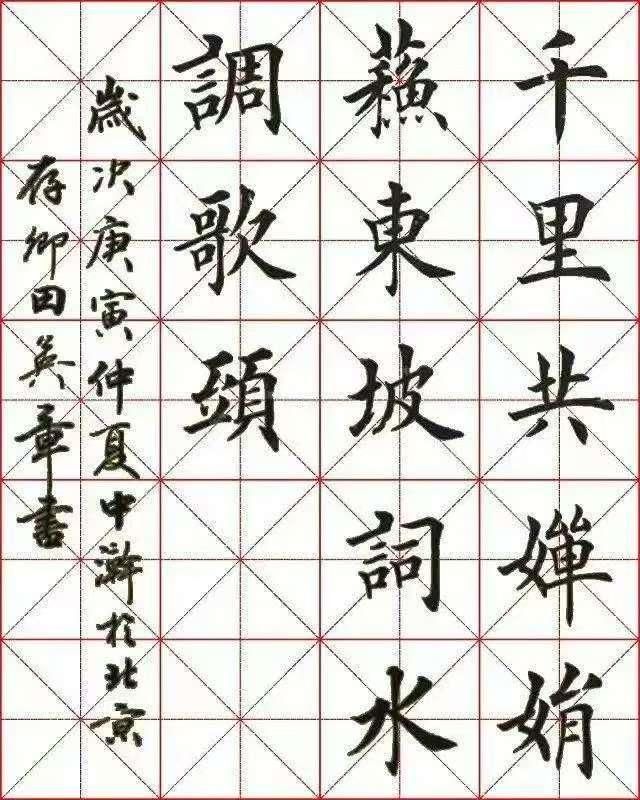 千里共嬋娟
蘇東坡詞水
調歌頭
歲次庚寅仲夏中澣於北京
存卿田英章書